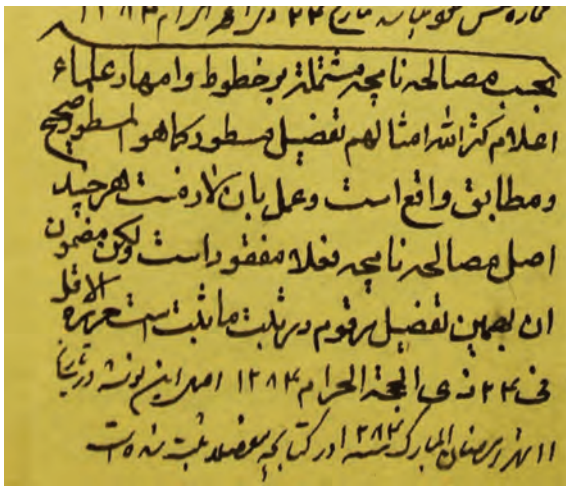 شماره شش بتاریخ ۲۴ ذی الحجة الحرام ۱۲۸۴
بموجب مصالحه نامچه مشتمله بر خطوط وامهار علماء
اعلام کثر الله امثالهم تفصیل مسطور کما هو المسطور صحیح
ومطابق واقع است وعمل بآن لازمست هر چند
اصل مصالحه نامچه فعلا مفقود است ولکن مضمون
ان بهمین تفصیل مرقوم در ثبت ما ثبت است حرره الاقل
فی ۲۴ ذی الحجة الحرام ۱۲۸۴ اصل این نوشته در تاریخ
۱۱ شهر رمضان المبارک سنه ۱۲۸۳ در کتابچه مفصله ثبت شده است